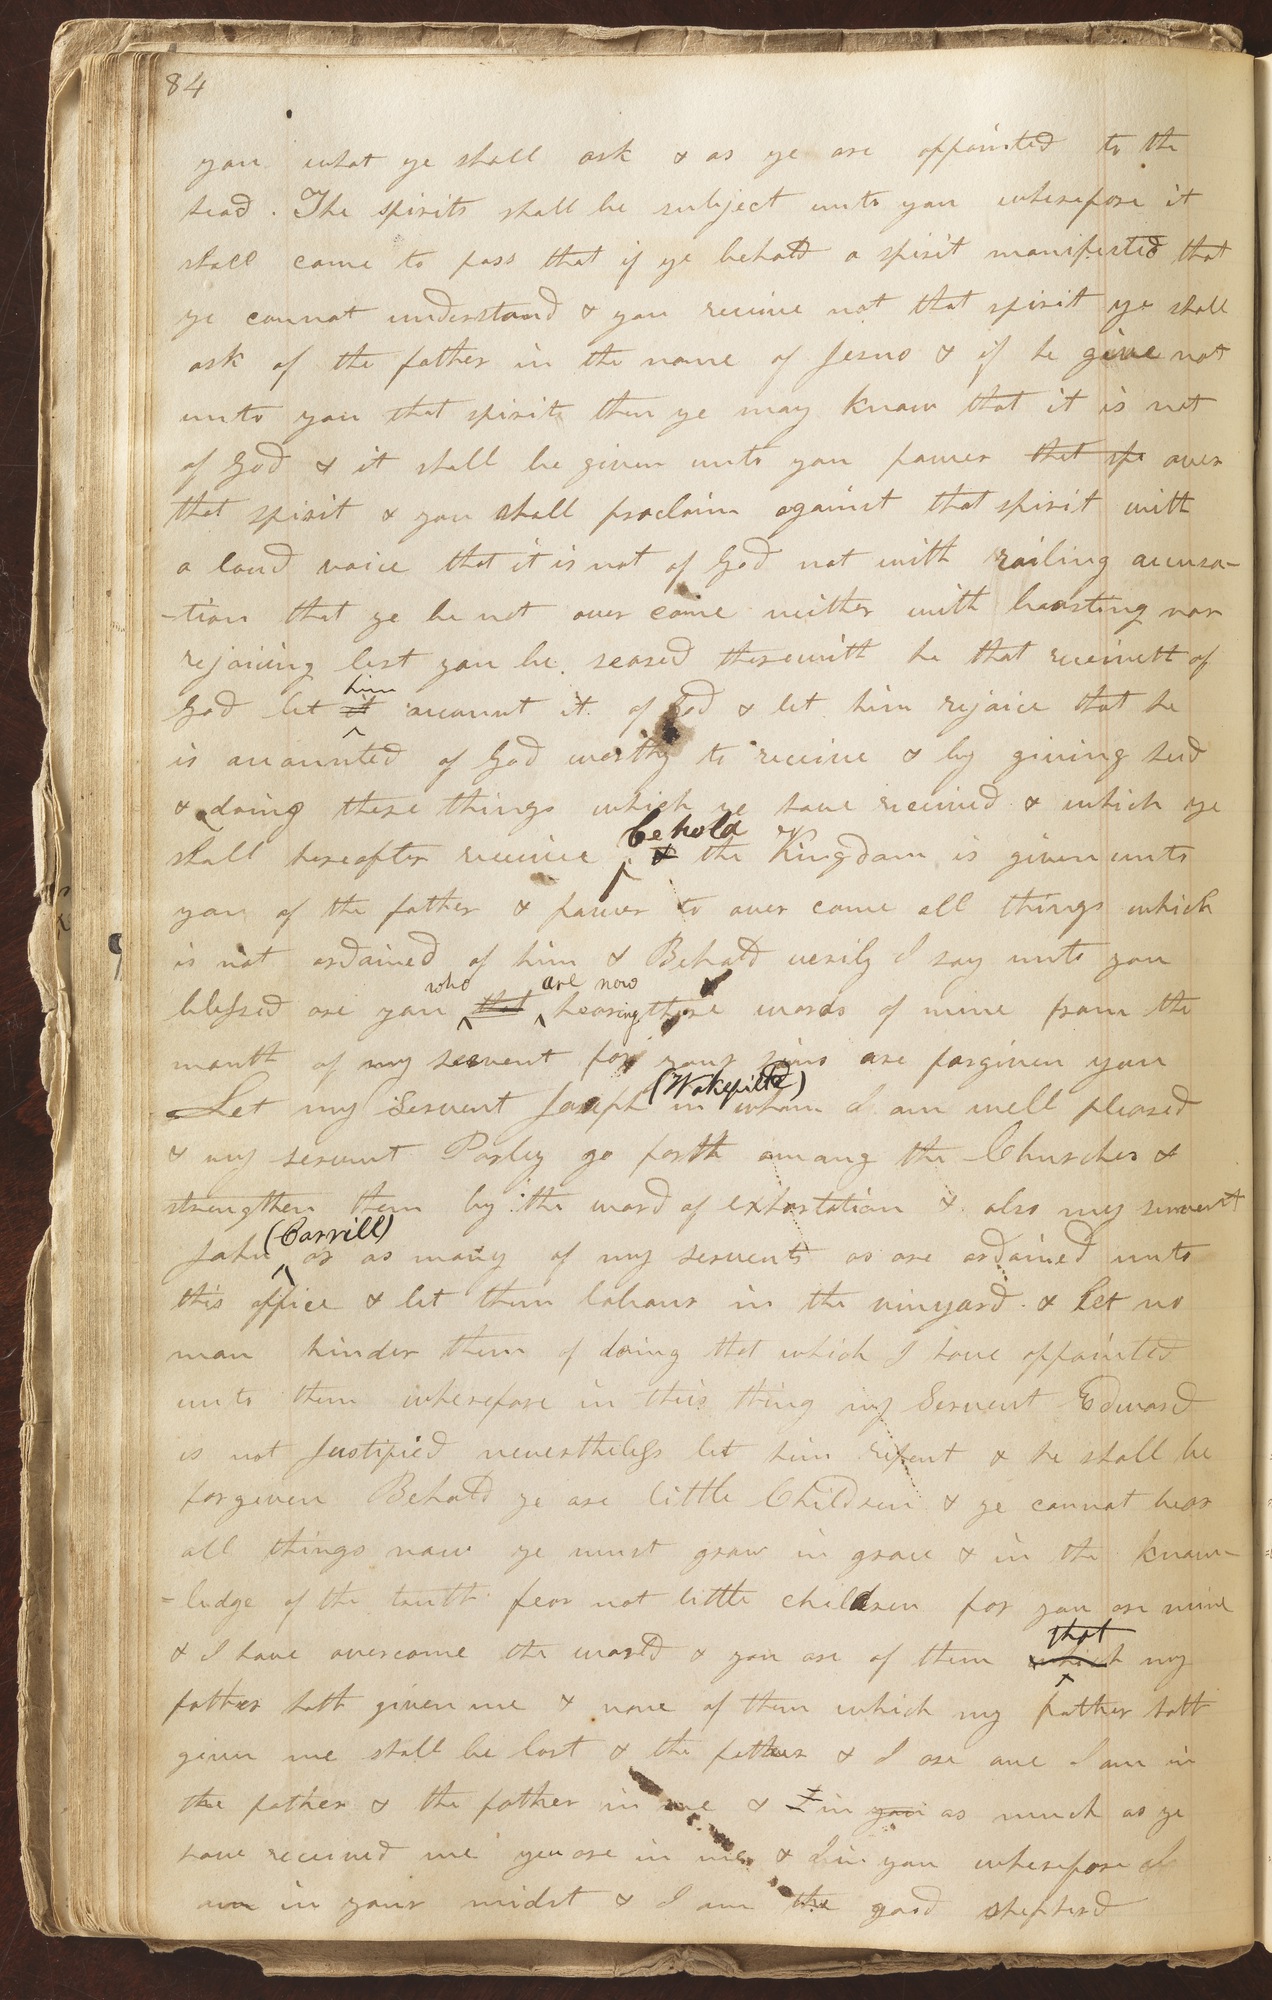 84
you what ye shall ask & as ye are appointed to the
head. The spirits shall be subject unto you wherefore it
shall come to pass that if ye behold a spirit manifested that
ye cannot understand & you receive not that spirit ye shall
ask of the father in the name of Jesus & if he give not
unto you that spirit then ye may know that it is not
of God & it shall be given unto you power that spi over
that spirit & you shall proclaim against that spirit with
a loud voice that it is not of God not with railing accusa-
-tion that ye be not over come neither with boasting nor
rejoicing lest you be seased therewith he that receiveth of
him
God let it account it of God & let him rejoice that he
is accounted of God worthy to receive & by giving heed
& doing these things which ye have received & which ye
behold
shall hereafter receive & the Kingdom is given unto
you of the father & power to over come all things which
is not ordained of him & Behold verily I say unto you
who are now
blessed are you that hearing these words of mine from the
mouth of my servent for your sins are forgiven you
(Wakefield)
Let my Servent Joseph in whom I am well pleased
& my servent Parley go forth among the Churches &
strengthen them by the word of exhortation & also my servent
(Corrill)
John or as many of my servents as are ordained unto
this office & let them labour in the vinyard & Let no
man hinder them of doing that which I have appointed
unto them wherefore in this thing my Servent Edward
is not Justified nevertheless let him repent & he shall be
forgiven Behold ye are little Children & ye cannot bear
all things now ye must grow in grace & in the know-
-ledge of the truth fear not little children for you are mine
that
& I have overcome the world & you are of them which my
father hath given me & none of them which my father hath
given me shall be lost & the father & I are one I am in
the father & the father in me & I in you as much as ye
have received me ye are in me & I in you wherefore I
am in your midst & I am the good shepherd